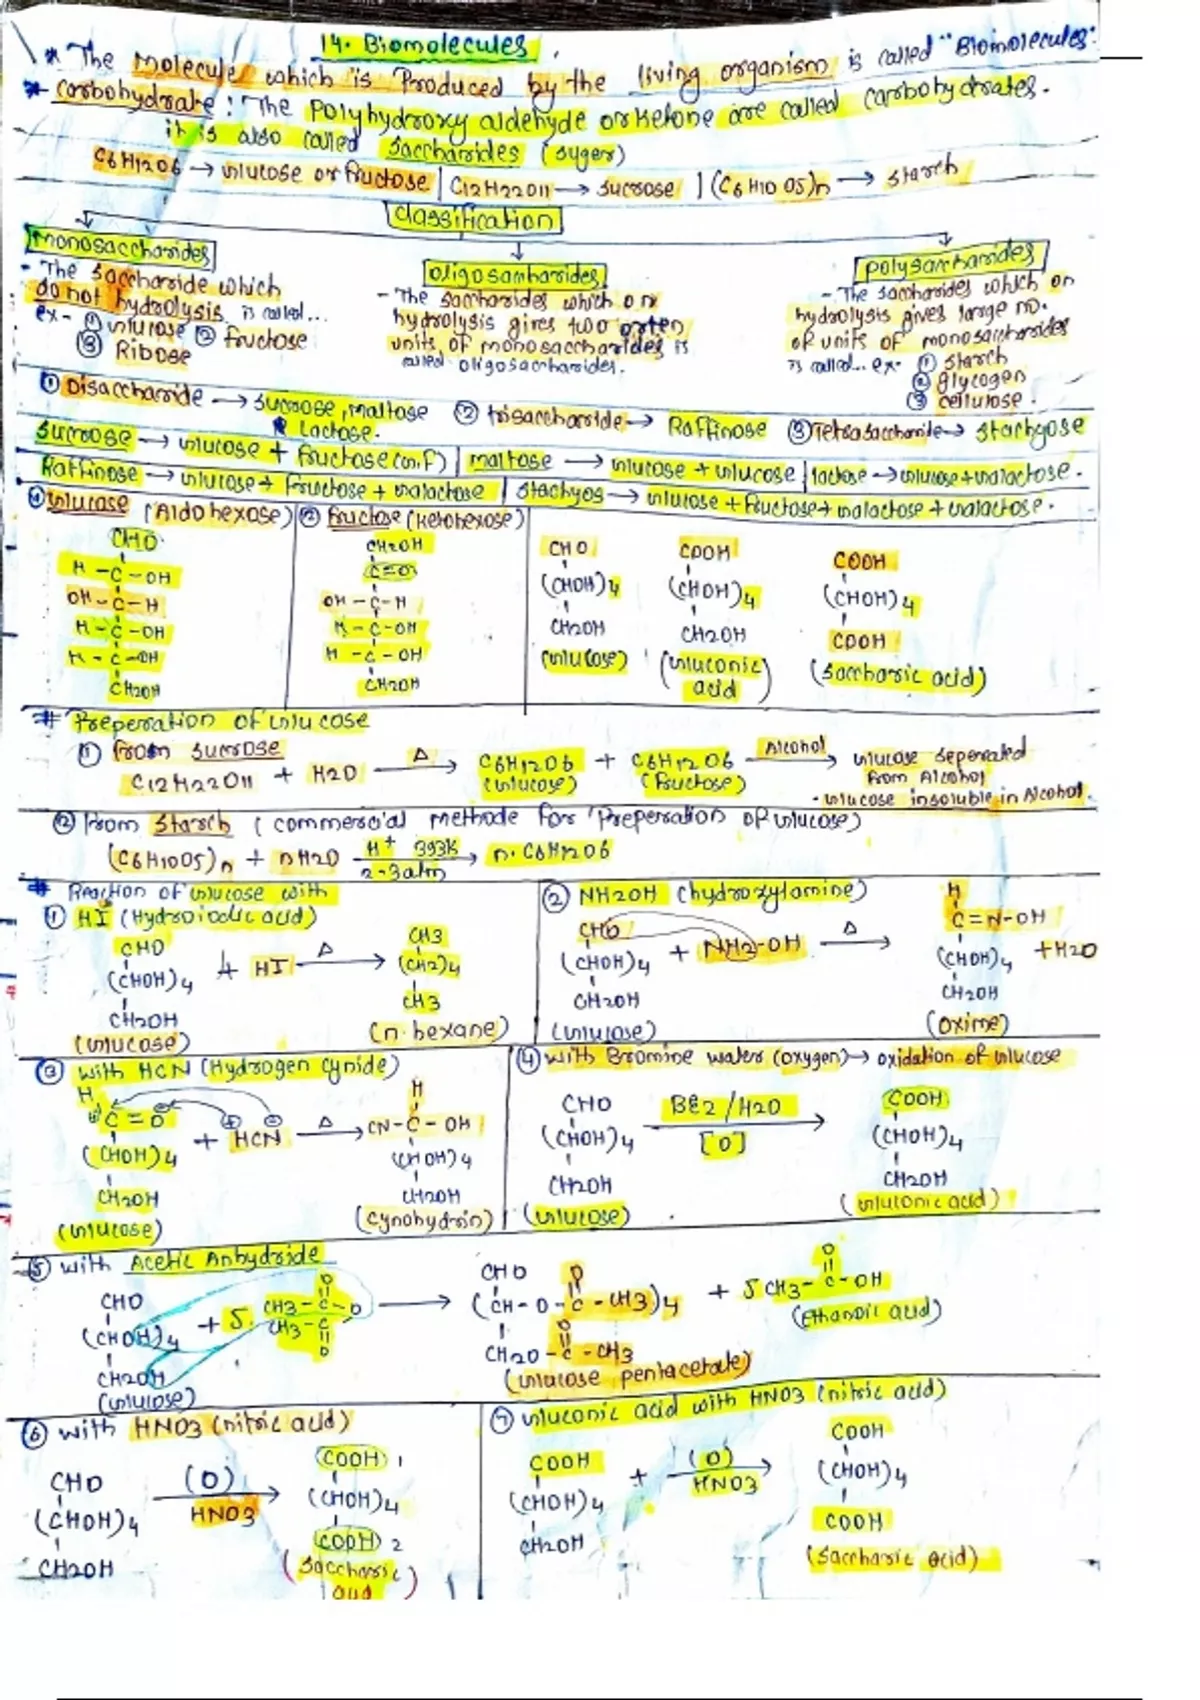 14. Biomolecules
* The molecule which is Produced by the living organism is called "Biomolecules".
* Carbohydrate: The Polyhydroxy aldehyde or Ketone are called carbohydrates.
it is also called Saccharides (suger)
C6H12O6 → Glucose or fructose | C12H22O11 → sucrose | (C6H10O5)n → starch
Classification
Monosaccharides
- The saccharide which
do not hydrolysis is called...
ex- ① Glucose ② fructose
③ Ribose
Oligosaccharides
- The saccharides which on
hydrolysis gives two or ten
units of monosaccharides is
called oligosaccharides.
Polysaccharides
- The saccharides which on
hydrolysis gives large no.
of units of monosaccharides
is called... ex- ① starch
② glycogen
③ cellulose.
① Disaccharide → sucrose, maltose ② trisaccharide → Raffinose ③ Tetrasaccharide → stachyose
& Lactose.
Sucrose → Glucose + fructose (G.F) | maltose → Glucose + Glucose | lactose → Glucose + Galactose.
Raffinose → Glucose + fructose + Galactose | Stachyos → Glucose + fructose + Galactose + Galactose.
① Glucose (Aldohexose)
CHO
H - C - OH
OH - C - H
H - C - OH
H - C - OH
CH2OH
② fructose (Ketohexose)
CH2OH
C = O
OH - C - H
H - C - OH
H - C - OH
CH2OH
CHO
(CHOH)4
CH2OH
(Glucose)
COOH
(CHOH)4
CH2OH
(Gluconic
acid)
COOH
(CHOH)4
COOH
(Saccharic acid)
# Preperation of Glucose
① from sucrose
C12H22O11 + H2O Δ → C6H12O6 + C6H12O6 Alcohol → Glucose seperated
(Glucose) (fructose) from Alcohol
- Glucose insoluble in Alcohol.
② from starch (commercial methode for Preperation of Glucose)
(C6H10O5)n + nH2O H+ 393K → n.C6H12O6
2-3atm
# Reaction of Glucose with
① HI (Hydroiodic acid)
CHO
(CHOH)4 + HI Δ →
CH2OH
(Glucose)
CH3
(CH2)4
CH3
(n.hexane)
② NH2OH (hydroxylamine)
CHO
(CHOH)4 + NH2-OH Δ →
CH2OH
(Glucose)
H
C = N-OH
(CHOH)4 + H2O
CH2OH
(Oxime)
③ with HCN (Hydrogen Cynide)
H
C = O
(CHOH)4 + HCN Δ →
CH2OH
(Glucose)
H
CN - C - OH
(CHOH)4
CH2OH
(cynohydrin)
④ with Bromine water (oxygen) → oxidation of Glucose
CHO
(CHOH)4 Br2/H2O →
[O]
CH2OH
(Glucose)
COOH
(CHOH)4
CH2OH
(Gluconic acid)
⑤ with Acetic Anhydride
CHO
(CHOH)4 + 5.
CH2OH
(Glucose)
O
CH3 - C - O
CH3 - C
O
→
CHO O
(CH - O - C - CH3)4
O
CH2O - C - CH3
(Glucose pentacetate)
O
+ 5CH3 - C - OH
(Ethanoic acid)
⑥ with HNO3 (nitric acid)
CHO
(CHOH)4
CH2OH
(O) →
HNO3
COOH 1
(CHOH)4
COOH 2
(Saccharic)
acid
⑦ Gluconic acid with HNO3 (nitric acid)
COOH
(CHOH)4
CH2OH
+ (O) →
HNO3
COOH
(CHOH)4
COOH
(Saccharic acid)